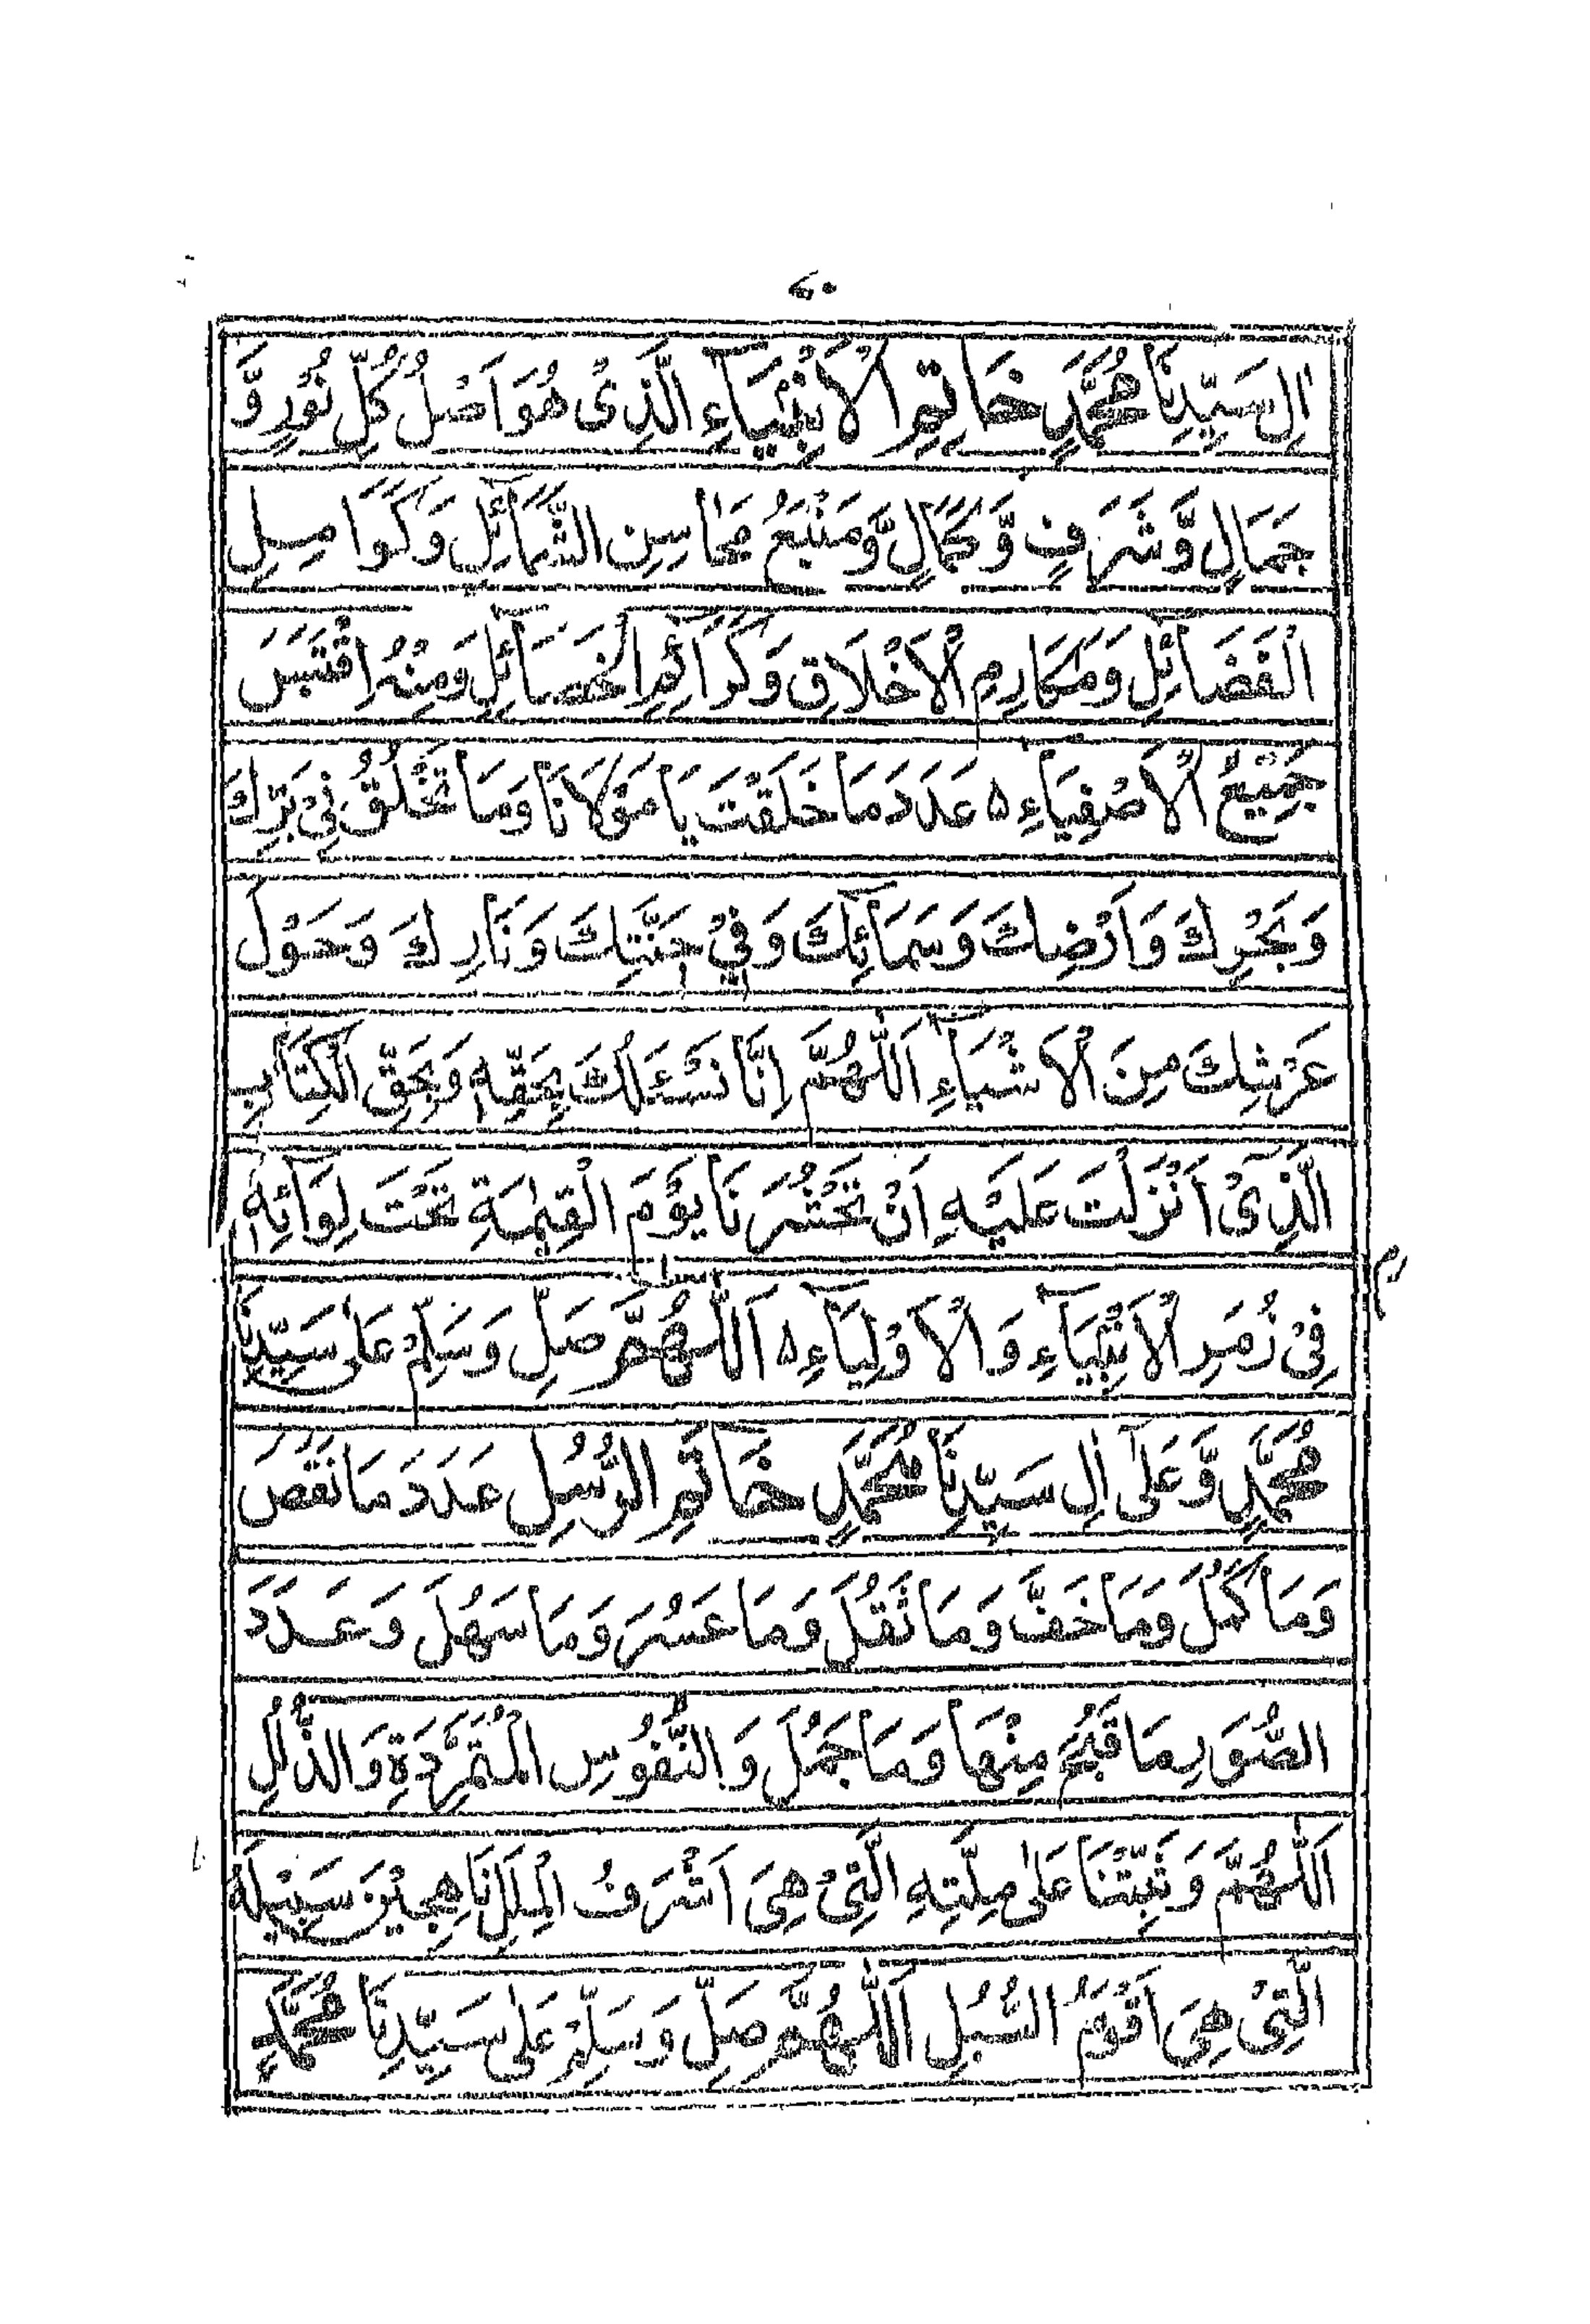 ٦٠
اٰلِ سَيِّدِنَا مُحَمَّدٍ خَاتِمِ الْاَنْۢبِيَآءِ الَّذِىْ هُوَ اَصْلُ كُلِّ نُوْرٍ وَّ
جَمَالٍ وَّشَرَفٍ وَّكَمَالٍ وَّمَنْۢبَعُ مَحَاسِنِ الشَّمَآئِلِ وَكَوَامِلِ
الْفَضَآئِلِ وَمَكَارِمِ الْاَخْلَاقِ وَكَرَآئِمِ الْخَصَآئِلِ وَمِنْهُ اقْتَبَسَ
جَمِيْعُ الْاَصْفِيَاءِ ۵ عَدَدَ مَا خَلَقْتَ يَا مَوْلَانَا وَمَا تَخْلُقُ فِىْ بَرِّكَ
وَبَحْرِكَ وَاَرْضِكَ وَسَمَآئِكَ وَفِىْ جَنَّتِكَ وَنَارِكَ وَحَوْلَ
عَرْشِكَ مِنَ الْاَشْيَآءِ اَللّٰهُمَّ اِنَّا نَسْئَلُكَ بِحَقِّهٖ وَبِحَقِّ الْكِتَابِ
الَّذِىْ اَنْزَلْتَ عَلَيْهِ اَنْ تَحْشُرَنَا يَوْمَ الْقِيٰمَةِ تَحْتَ لِوَآئِهٖ
فِىْ زُمَرِ الْاَنْۢبِيَآءِ وَالْاَوْلِيَآءِ ۵ اَللّٰهُمَّ صَلِّ وَسَلِّمْ عَلٰى سَيِّدِنَا
مُحَمَّدٍ وَّعَلٰٓى اٰلِ سَيِّدِنَا مُحَمَّدٍ خَاتَمِ الرُّسُلِ عَدَدَ مَا نَقَصَ
وَمَا كَمُلَ وَمَا خَفَّ وَمَا ثَقُلَ وَمَا عَسُرَ وَمَا سَهُلَ وَعَدَدَ
الصُّوَرِ مَا قَبُحَ مِنْهَا وَمَا جَمُلَ وَالنُّفُوْسِ الْمُتَمَرِّدَةِ وَالذُّلُلِ
اَللّٰهُمَّ وَثَبِّتْنَا عَلٰى مِلَّتِهِ الَّتِىْ هِىَ اَشْرَفُ الْمِلَلِ نَاهِجِيْنَ سَبِيْلَهُ
الَّتِىْ هِىَ اَقْوَمُ السُّبُلِ اَللّٰهُمَّ صَلِّ وَسَلِّمْ عَلٰى سَيِّدِنَا مُحَمَّدٍ